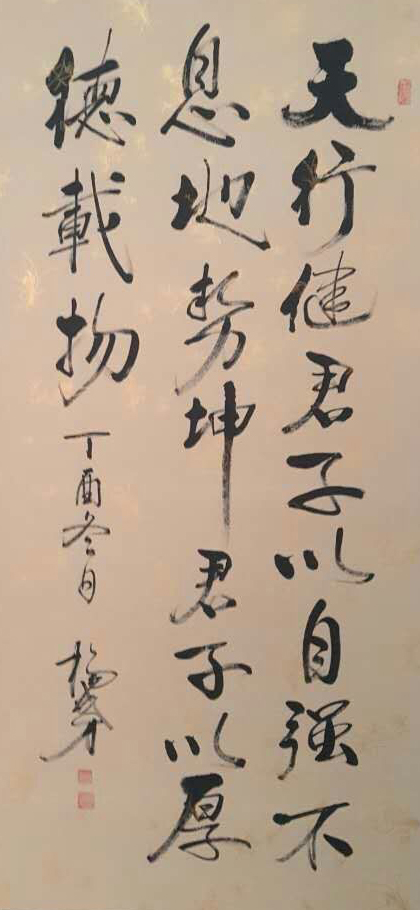 天行健君子以自强不
息地势坤君子以厚
德載物丁酉冬日